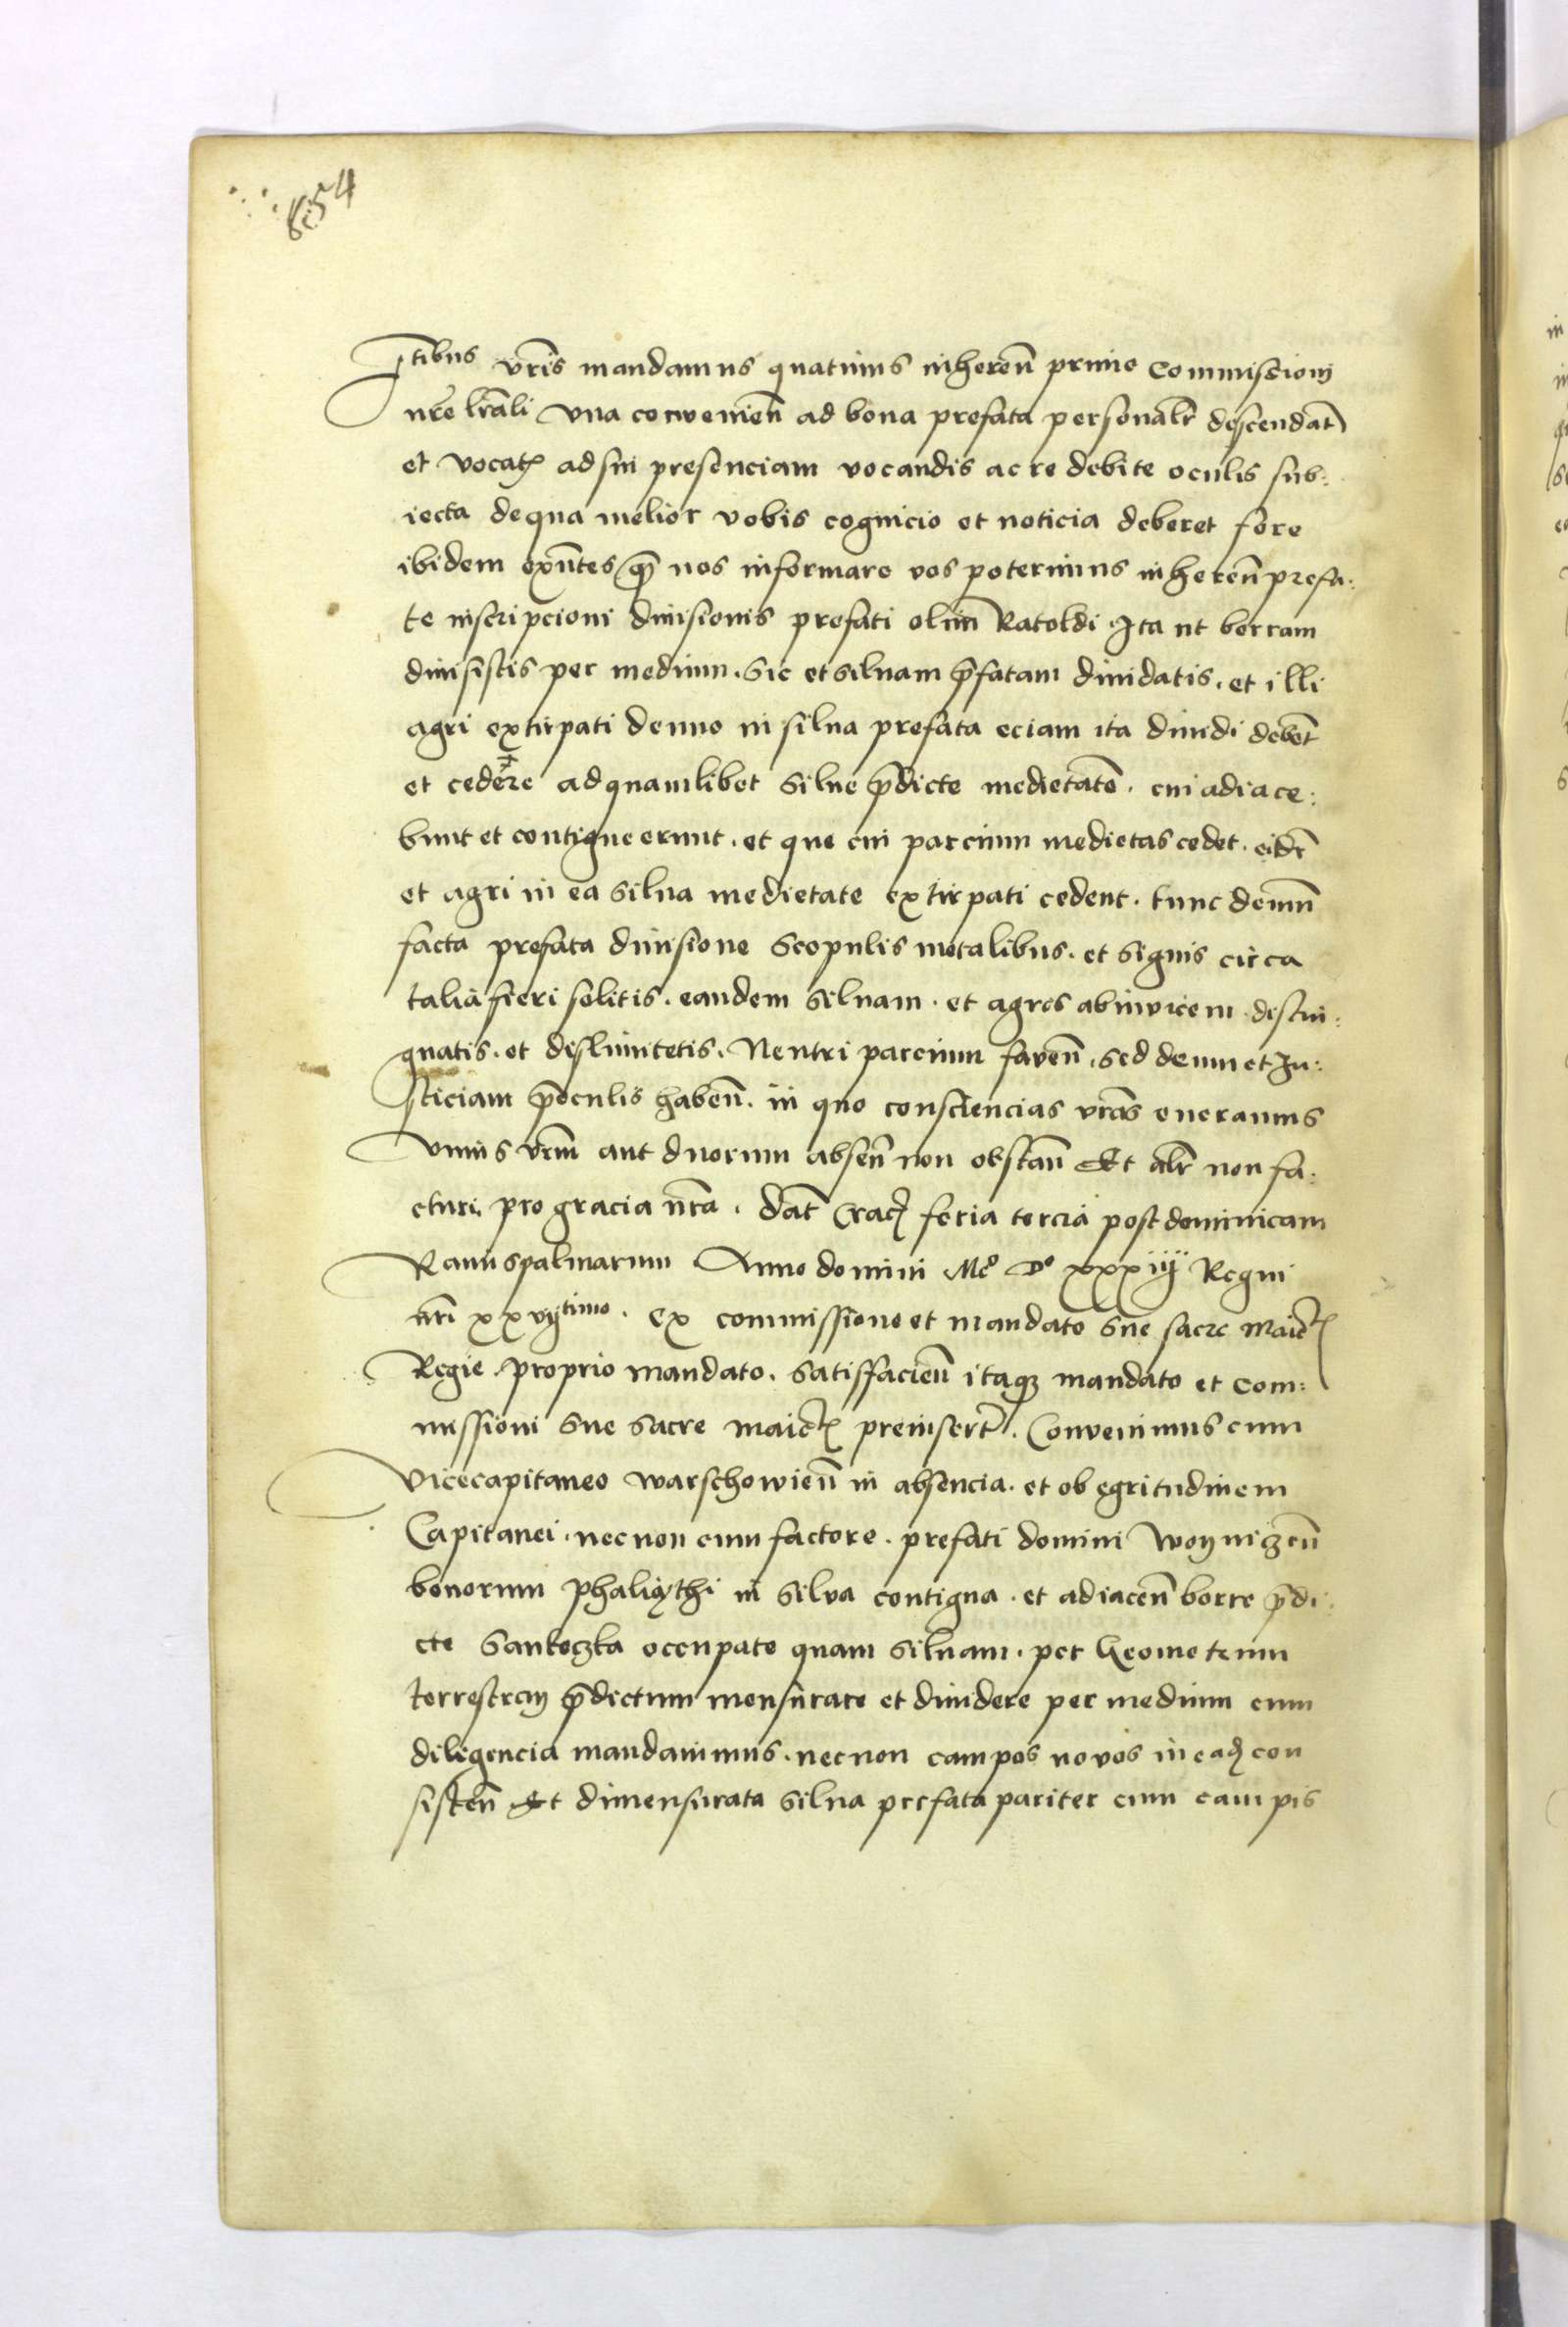 654
stibus vris mandamus quatinus inheren primo Commissioni
nre lrali vna convenien ad bona prefata personalr descendat
et vocat ad sui presenciam vocandis ac re debite oculis sub:
iecta de qua melior vobis cognicio et noticia deberet fore
ibidem exntes qm nos informare vos poterimus inheren prefa:
te inscripcioni divisionis prefati olim Ratoldi Ita ut borram
divisistis per medium. sic et silvam pfatam dividatis. et illi
agri extirpati denuo in silva prefata eciam ita dividi debet
et cedere ad quamlibet silve pdicte medietate. cui adiace:
bunt et contigue erunt. et que cui parcium medietas cedet. eidr
et agri in ea silva medietate extirpati cedent. tunc demu
facta prefata divisione Scopulis metalibus. et signis circa
talia fieri solitis. eandem silvam. et agros abinvicem distin:
guatis. et deslimitetis. Neutri parcium faven. sed deum et Iu:
sticiam pre oculis haben. in quo consciencias vras oneramus
vnius vrm aut duorum absen non obstan Et alr non fa:
cturi pro gracia nra. Dat Crac feria tercia post dominicam
Ramispalmarum Anno domini Mo Do xxxiiij Regni
nri xxvijtimo. ex commissione et mandato sue sacre maict
Regie proprio mandato. Satisfacien itaq mandato et com:
missioni sue sacre maict preinsert. Convenimus cum
vicecapitaneo warschowien in absencia. et ob egritudinem
Capitanei. necnon cum factore. prefati domini woynicen
bonorum phaliythi in silva contigua. et adiacen borre pdi:
cte Santoczka occupate quam silvam. per Geometrum
terrestrem pdictum mensurare et dividere per medium cum
diligencia mandavimus. necnon campos novos in ead con
sisten Et dimensurata silva prefata pariter cum campis